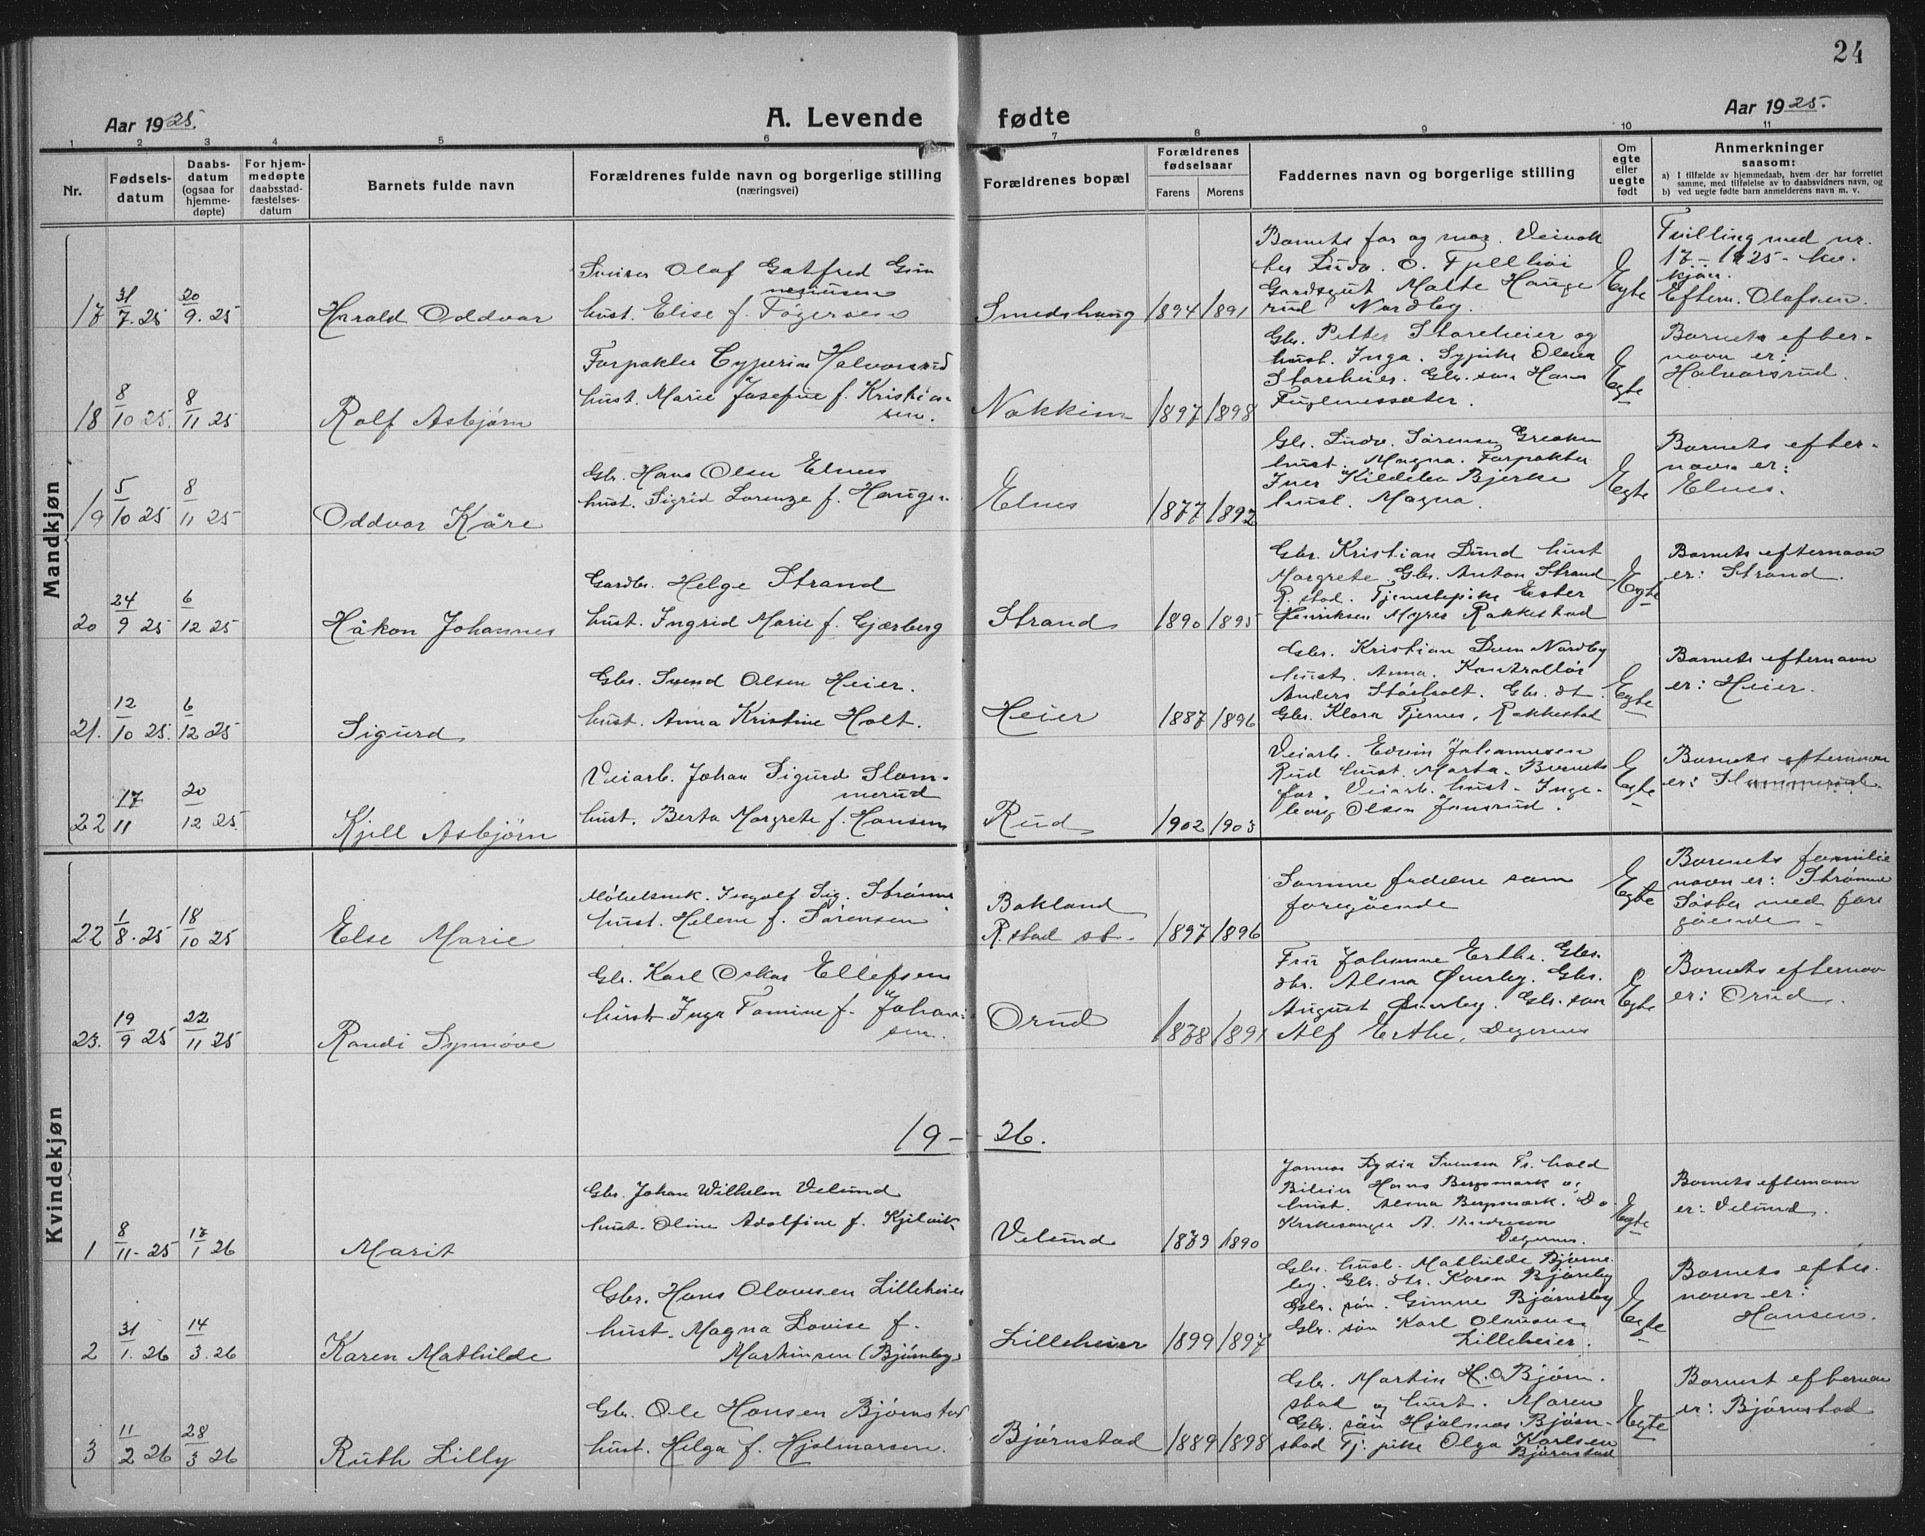 24
Aar 1925.
A. Levende fødte
Aar 1925.
1 2 3 4 5 6 7 8 9 10 11
Nr.
Fødsels-
datum
Daabs-
datum
(ogsaa for
hjemme-
døpte)
For hjem-
medøpte
daabsstad-
fæstelses-
datum
Barnets fulde navn
Forældrenes fulde navn og borgerlige stilling
(næringsvei)
Forældrenes bopæl
Forældrenes
fødselsaar
Farens Morens
Faddernes navn og borgerlige stilling
Om
egte
eller
uegte
født
Anmerkninger
saasom:
a) I tilfælde av hjemmedaab, hvem der har forrettet
samme, med tilføielse av to daabsvidners navn, og
b) ved uegte fødte barn anmelderens navn m. v.
Mandkjøn
17
31/7. 25
20/9. 25
Harald Oddvar
Sveiser Olaf Gotfred Gun
neriusen
hust. Elise f. Fogersen
Smedshaug
1894 1891
Barnets far og mor. Veivok
ter Ludv. O. Fjellhøi
Gardsgut Malte Hauge
rud Nordby.
Egte
Tvilling med nr.
17 - 1925 - kv.
kjøn.
Eftern. Olafsen.
18
8/10 25.
8/11 25
Rolf Asbjørn
Forpakter Cyperian Halvorsrud
hust. Marie Josefine f. Kristian-
sen.
Nakkim
1897 1898
Gbr. Petter Storeheier og
hust. Inga. Sypike Olena
Storeheier. Gbr. søn Hans
Fuglenessæter.
Egte
Barnets efter-
navn er:
Halvorsrud.
19
5/10 25
8/11 25
Oddvar Kåre
Gbr. Hans Olsen Elnes
hust. Sigrid Lorenze f. Haugen
Elnes
1877 1892
Gbr. Ludv. Sørensen Greaker
hust. Magna. Forpakter
Iver Kildebo Bjerke
hust. Magna.
Egte
Barnets efter-
navn er:
Elnes.
20
24/9 25
6/12 25
Håkon Johannes
Gardbr. Helge Strand
hust. Ingrid Marie f. Gjærberg
Strand
1890 1895
Gbr. Kristian Lund hust
Margrete, Gbr. Anton Strand
R. stad. Tjenestepike Ester
Henriksen Myres Rakkestad
Egte
Barnets efternavn
er: Strand.
21.
12/10 25.
6/12 25
Sigurd
Gbr. Svend Olsen Heier.
hust. Anna Kristine Holt.
Heier
1887 1896
Gbr. Kristian Dum Nordby
hust. Anna. Kontrollør
Anders Störholt. Gbr. dt.
Gbr. Klara Tjernes, Rakkestad
Egte
Barnets efternavn
er: Heier.
22
17/11
20/12 25
Kjell Asbjørn
Veiarb. Johan Sigurd Slom-
merud
hust. Berta Margrete f. Hansen
Rud
1902 1903
Veiarb. Edvin Johannesen
Rud hust. Marta. Barnets
far. Veiarb. hust. Inge-
borg Olsen Jonsrud.
Egte
Barnets efternavn
er:
Kvindekjøn
22
1/8. 25
18/10 25
Else Marie
Møbelsnek. Ingolf Sig. Strømne
hust. Helene f. Sørensen
Bakland
R. stad st.
1897 1896
Samme faddere som
foregående
Egte
Barnets familie
navn er: Strømne
Søster med fore
gående.
23.
19/9 25
22/11 25
Randi Synnøve
Gbr. Karl Oskar Ellefsen
hust. Inga Tomine f. Johan-
sen.
Orud
1878 1891
Fru Johanne Erthe. Gbr.
dtr. Alma Øverby. Gbr.
August Øverby. Gbr. søn
Alf Erthe, Degernes
Egte
Barnets efternavn
er: Orud.
19 - 26.
1
8/11- 25
17/1 26
Marit
Gbr. Johan Wilhelm Velund
hust. Oline Adolfine f. Kjilvik
Velund
1879 1890
Jormor Lydia Svensen Fr. hald
Bileier Hans Bergsmark og
hust. Alma Bergsmark. Do.
Kirkesanger A. Andresen
Degernes.
Egte
Barnets efternavn
er: Velund.
2
31/1. 26
14/3. 26
Karen Mathilde
Gbr. Hans Olavesen Lilleheier
hust. Magna Lovise f.
Martinsen (Bjørnby)
Lilleheier
1899 1897
Gbr. hust. Mathilde Bjørne
by. Gbr. dtr. Karen Bjørnby
Gbr. søn. Gunne Bjørneby
Gbr. søn Karl Olavsen
Lilleheier.
Egte
Barnets efter.
navn er:
Hansen.
3
11/2 26
28/3 26
Ruth Lilly
Gbr. Ole Hansen Bjørnstad
hust. Helga f. Hjalmarsen.
Bjørnstad
1889 1898
Gbr. Martin H. Bjørn.
stad og hust. Maren
Gbr. søn Hjalmar Bjørn-
stad Tj. pike Olga Karlsen
Bjørnstad
Egte
Barnets efternavn
er: Bjørnstad